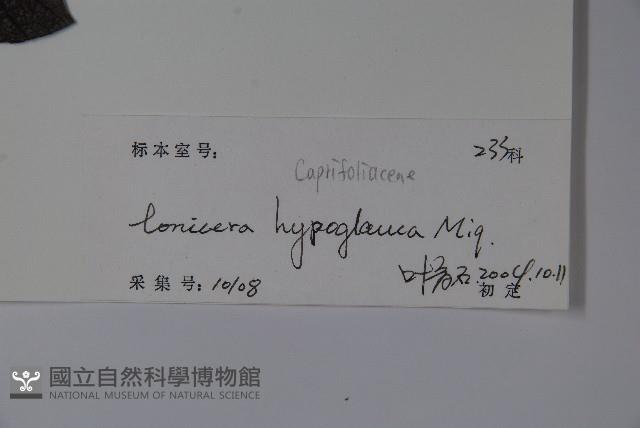 标本室号:
233科
Caprifoliaceae
Lonicera hypoglauca Miq.
采集号: 10108
叶育石. 2004.10.11
初定
國立自然科學博物館
NATIONAL MUSEUM OF NATURAL SCIENCE